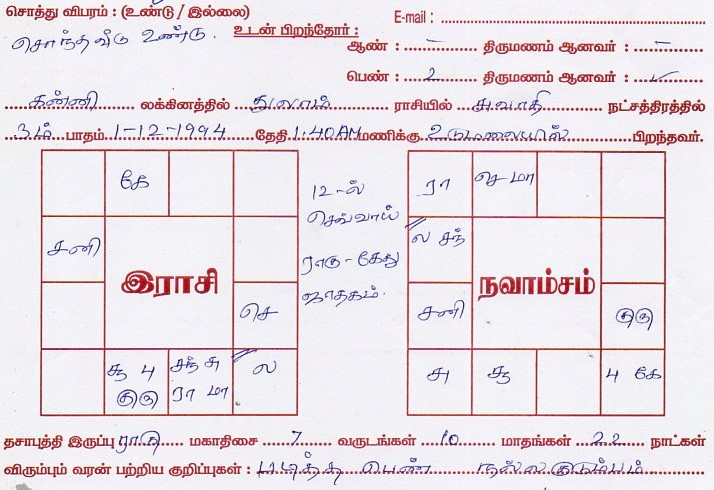 சொத்து விபரம் : (உண்டு / இல்லை)
E-mail :
சொந்த வீடு உண்டு.
உடன் பிறந்தோர் :
ஆண் : – திருமணம் ஆனவர் : –
பெண் : 2 திருமணம் ஆனவர் : ✓
கன்னி லக்கினத்தில் துலாம் ராசியில் சுவாதி நட்சத்திரத்தில்
3ம் பாதம் 1-12-1994 தேதி 1:40AM மணிக்கு உடுமலையில் பிறந்தவர்.
கே
சனி
இராசி
செ
சூ பு
குரு
சந் சு
ரா மா
ல
12-ல்
செவ்வாய்
ராகு-கேது
ஜாதகம்.
ரா
செ மா
ல சந்
சனி
நவாம்சம்
குரு
சு
சூ
பு கே
தசாபுத்தி இருப்பு ராகு மகாதிசை 7 வருடங்கள் 10 மாதங்கள் 22 நாட்கள்
விரும்பும் வரன் பற்றிய குறிப்புகள் : படித்த பெண் நல்ல குடும்பம்